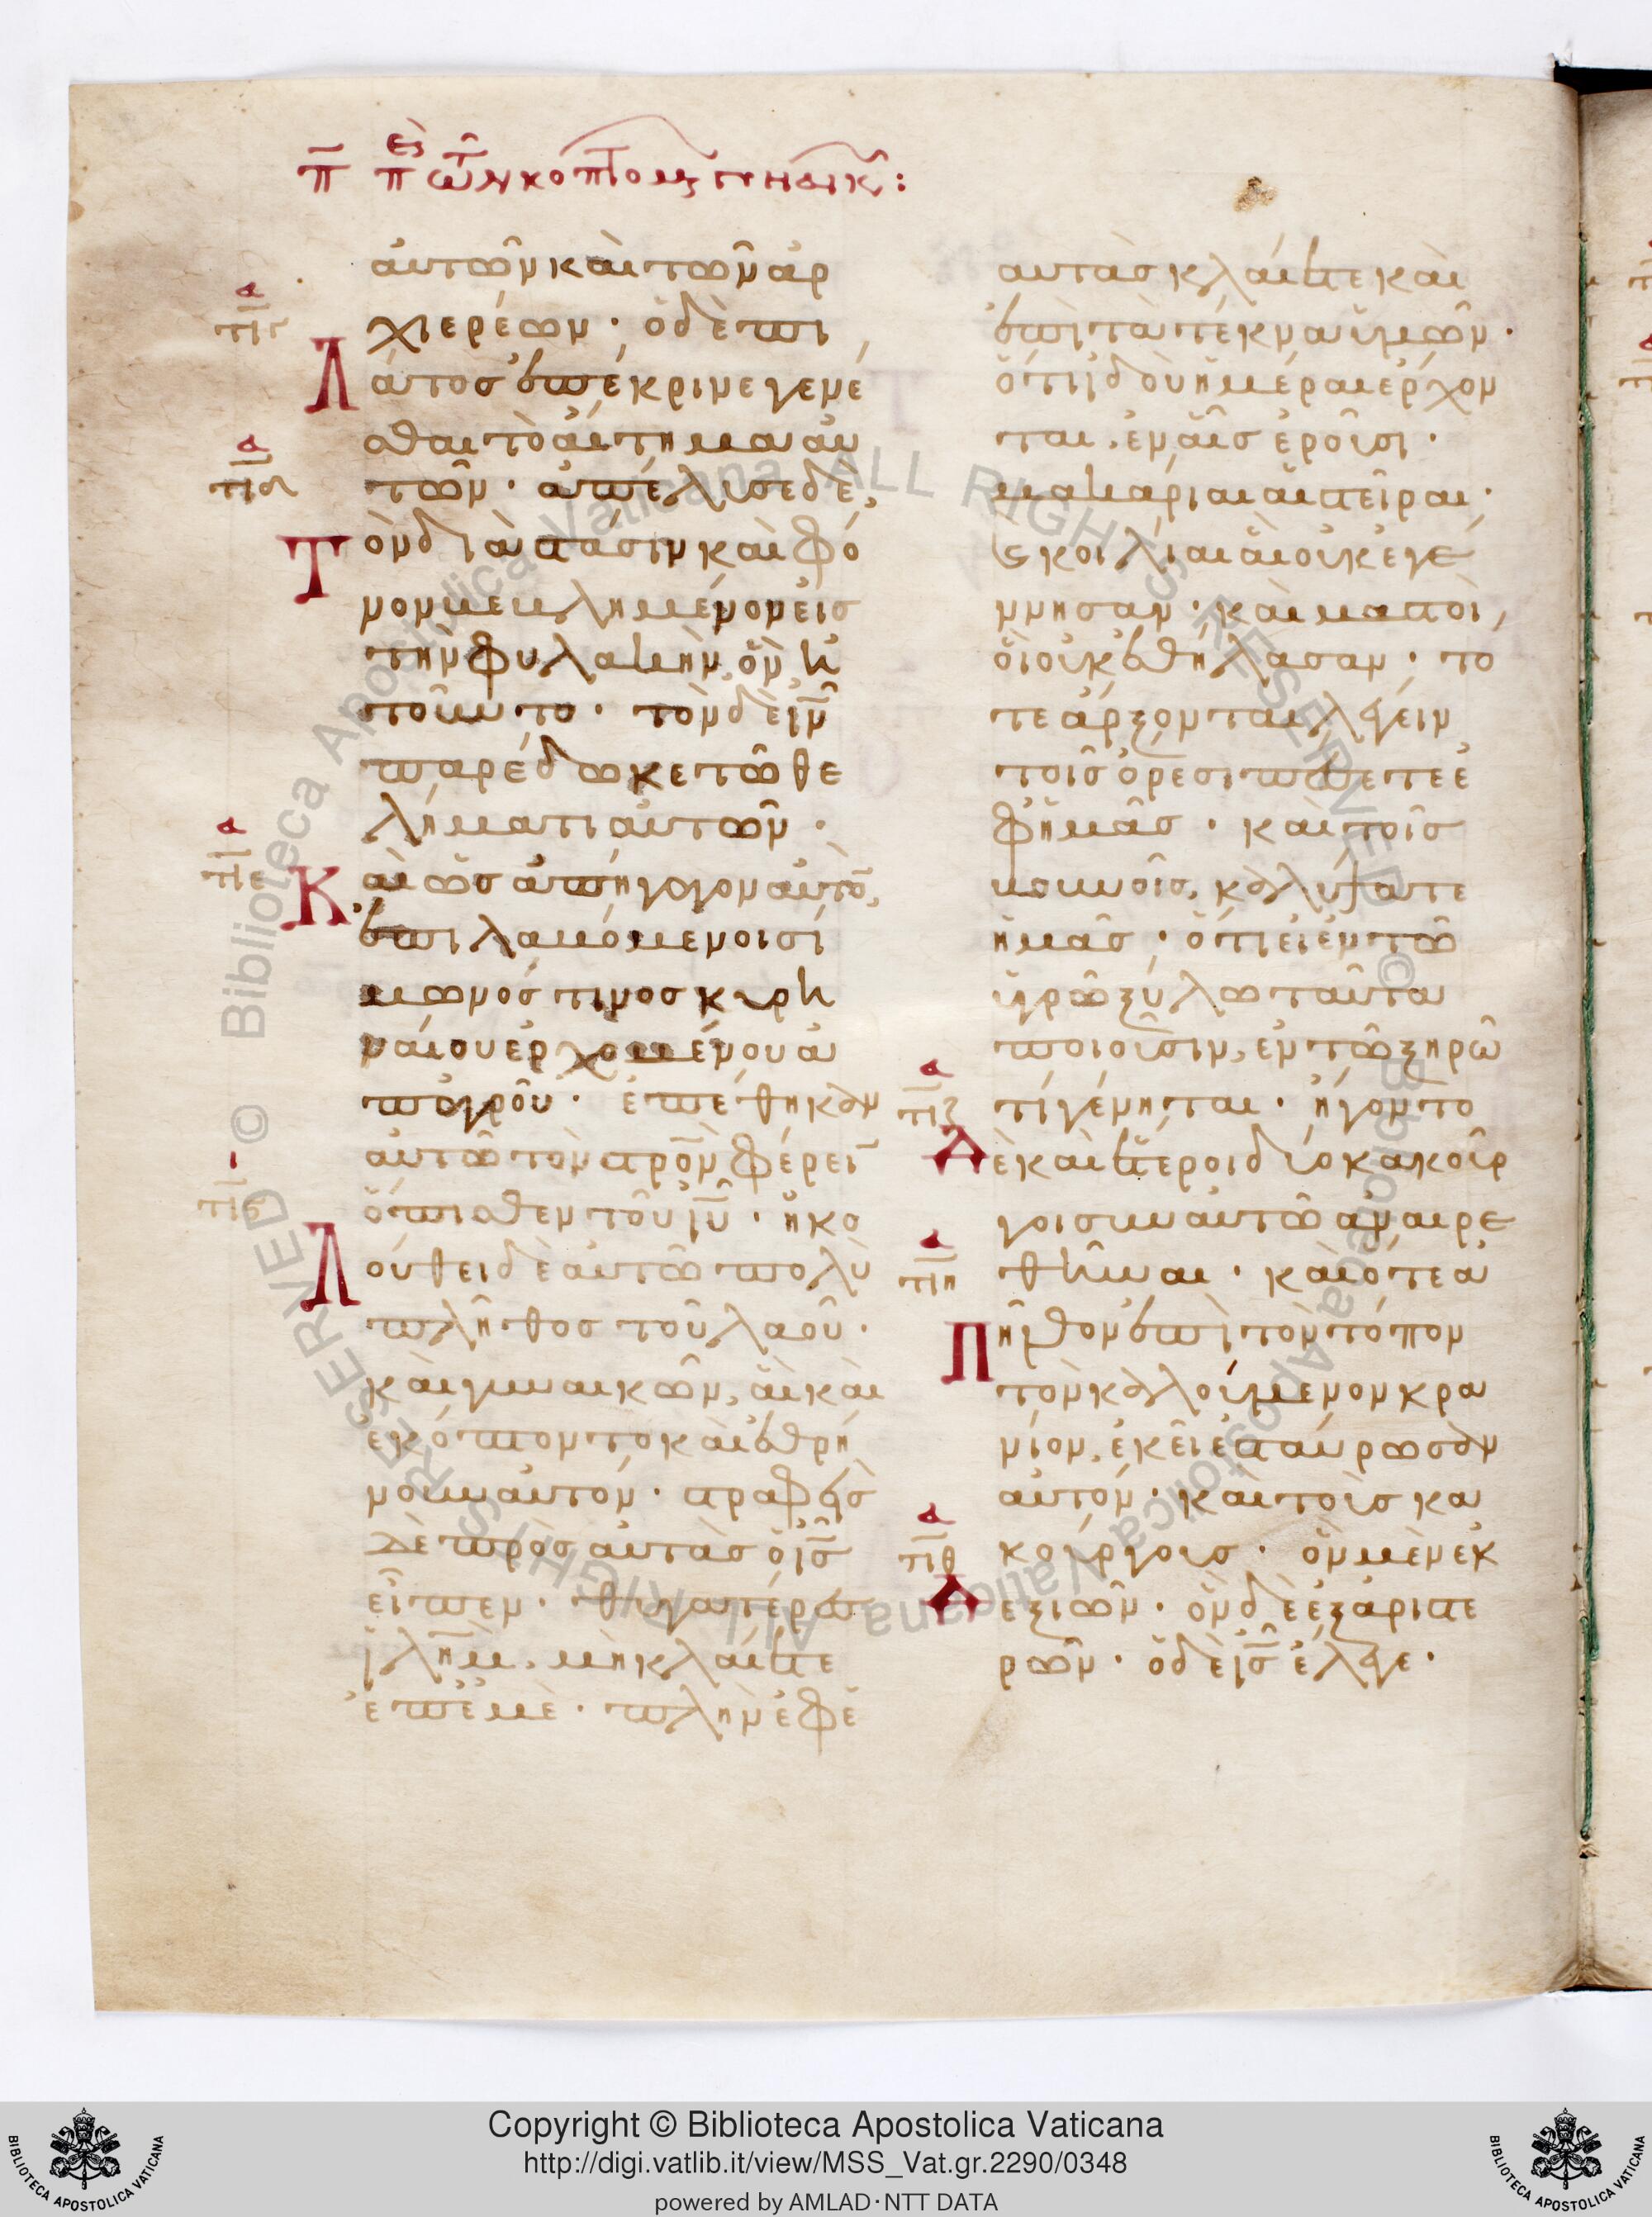 π̄ περὶ τῶν κοπτομένων γυναικῶν:
αὐτῶν καὶ τῶν ἀρ
χιερέων· ὁ δὲ πι
Λάτος ἐπέκρινε γενέ
σθαι τὸ αἴτημα αὐ
τῶν· ἀπέλυσε δὲ,
Τὸν διὰ στάσιν καὶ φό
νον βεβλημένον εἰς
τὴν φυλακὴν, ὃν ἠ
τοῦντο· τὸν δὲ ιν̄
παρέδωκε τῶ θε
λήματι αὐτῶν·
Καὶ ὡς ἀπήγαγον αὐτὸ̄,
ἐπιλαβόμενοι σί
μωνός τινος κυρη
ναίου ἐρχομένου ἀ
π' ἀγροῦ· ἐπέθηκαν
αὐτῶ τὸν στρο̄ν φέρεῑ
ὄπισθεν τοῦ ιῡ· ἠκο
Λούθει δὲ αὐτῶ πολὺ
πλῆθος τοῦ λαοῦ·
καὶ γυναικῶν, αἳ καὶ
ἐκόπτοντο καὶ ἐθρή
νουν αὐτόν· στραφεὶς
δὲ πρὸς αὐτὰς ὁ ις̄
εἶπεν· θυγατέρες
ιλη̄μ, μὴ κλαίετε
ἐπ' ἐμὲ· πλὴν ἐφ' ἑ
αυτὰς κλαίετε καὶ
ἐπὶ τὰ τέκνα ὑμῶν·
ὅτι ἰδοὺ ἡμέραι ἔρχον
ται, ἐν αἷς ἐροῦσι·
μακάριαι αἱ στεῖραι·
ϗ κοιλίαι αἳ οὐκ ἐγέ
ννησαν· καὶ μαστοὶ,
οἳ οὐκ ἐθήλασαν· τό
τε ἄρξονται λέγειν
τοῖς ὄρεσι πέσετε ἐ
φ' ἡμᾶς· καὶ τοῖς
βουνοῖς, καλύψατε
ἡμᾶς· ὅτι εἰ ἐν τῶ
ὑγρῶ ξύλω ταῦτα
ποιοῦσιν, ἐν τῶ ξηρῶ
τί γένηται· ἤγοντο
Δὲ καὶ ἕτεροι δύο κακοῦρ
γοι σὺν αὐτῶ ἀναιρε
θῆναι· καὶ ὅτε ἀ
Πῆλθον ἐπὶ τὸν τόπον
τὸν καλούμενον κρα
νίον, ἐκεῖ ἐσταύρωσαν
αὐτόν· καὶ τοὺς κα
κούργους· ὃν μὲν ἐκ
Δεξιῶν· ὃν δὲ ἐξ ἀριστε
ρῶν· ὁ δὲ ις̄ ἔλεγε·
Copyright © Biblioteca Apostolica Vaticana
http://digi.vatlib.it/view/MSS_Vat.gr.2290/0348
powered by AMLAD·NTT DATA